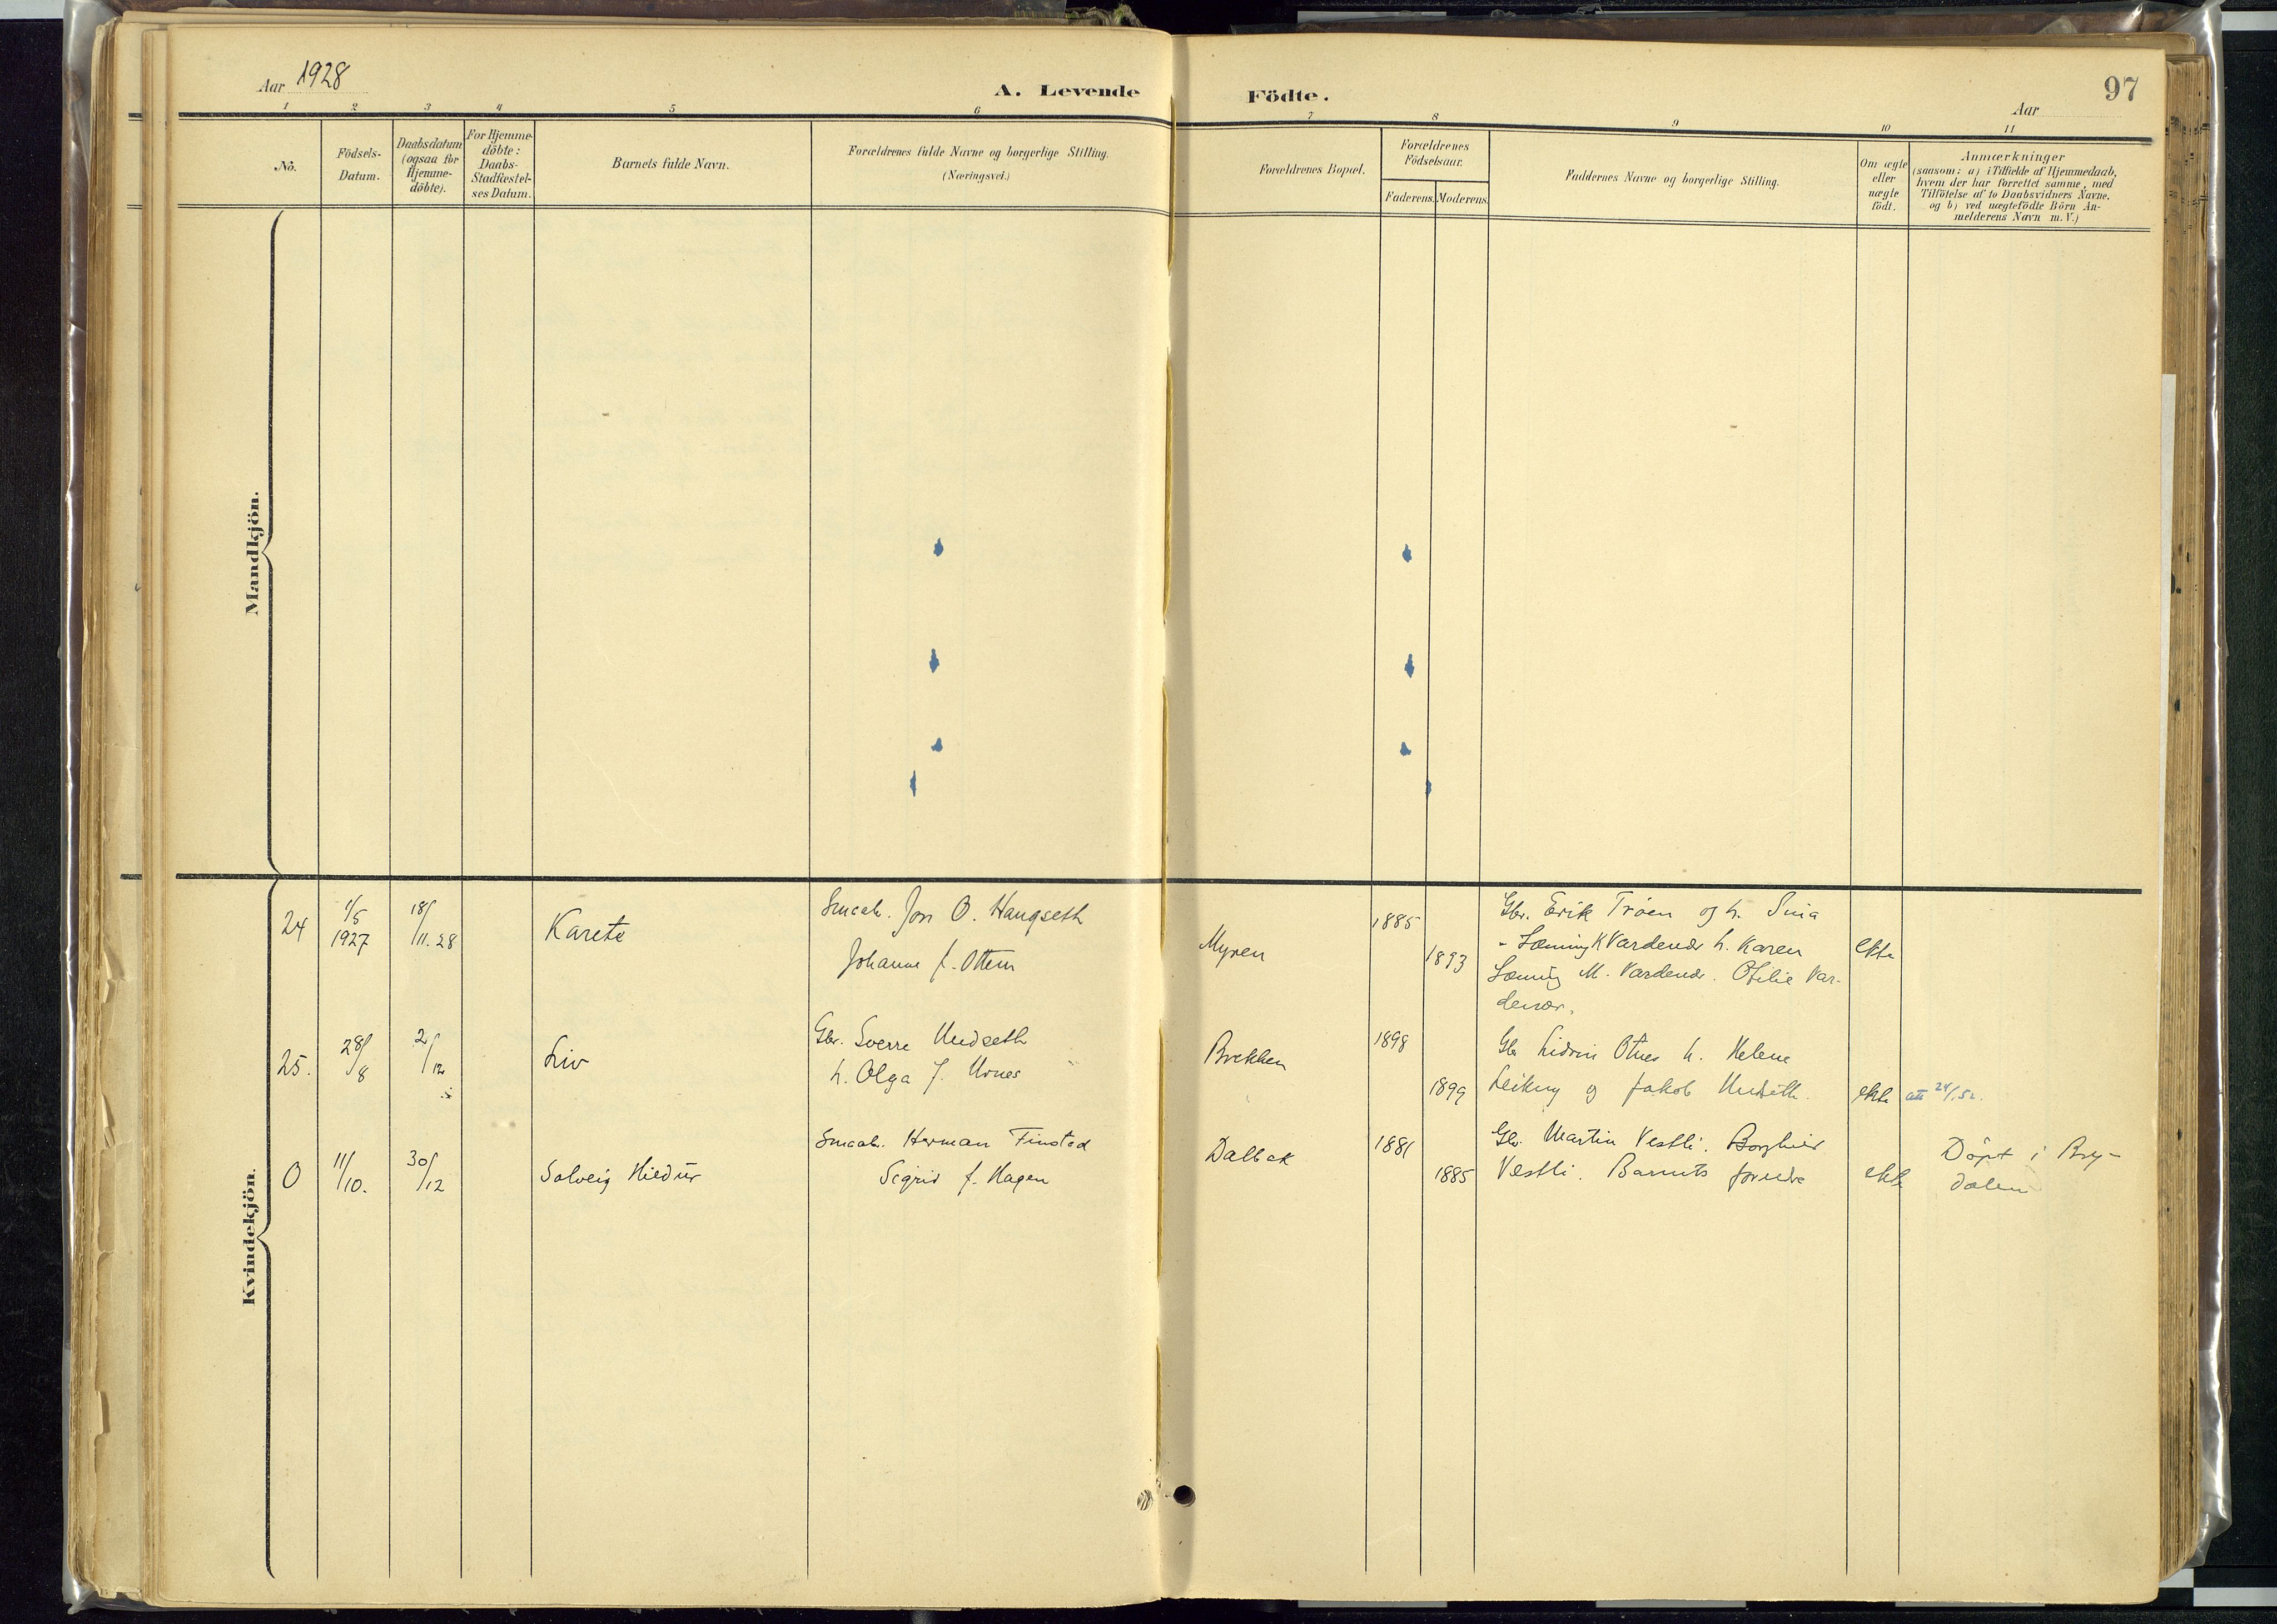 Aar 1928
A. Levende Födte.
97
Aar
1 2 3 4 5 6 7 8 9 10 11
No.
Födsels-Datum.
Daabsdatum (ogsaa for Hjemme-döbte).
For Hjemme-döbte: Daabs-Stadfæstel-ses Datum.
Barnets fulde Navn.
Forældrenes fulde Navne og borgerlige Stilling. (Næringsvei.)
Forældrenes Bopæl.
Forældrenes Födselsaar.
Faderens. Moderens.
Faddernes Navne og borgerlige Stilling.
Om ægte eller uægte födt.
Anmærkninger
(saasom: a) i Tilfælde af Hjemmedaab,
hvem der har forrettet samme, med
Tilföielse af to Daabsvidners Navne.
og b) ved uægtefödte Börn An-
melderens Navn m. V.)
Mandkjön.
Kvindekjön.
24 1/5 1927 18/11.28 Karete
Smaab. Jon O. Haugseth
Johanne f. Ottem
Myren 1885 1893
Gbr. Erik Trøen og h.
K Vardenær h. Karen
M. Vardenær. Otelie Var-
denær.
ekte
25. 28/8 2/12 Liv
Gbr. Sverre Undseth
h. Olga f. Urnes
Brekken 1898 1899
Gbr Otnes h. Helene
og Jakob Undseth.
ekte att 24/1.52.
0 11/10. 30/12 Solveig Hildur
Smaab. Herman Finstad
Sigrid f. Hagen
Dalbak 1881 1885
Gbr. Martin Vestli. Borghild
Vestli. Barnets foreldre
ekte
Döpt i Bry-
dalen